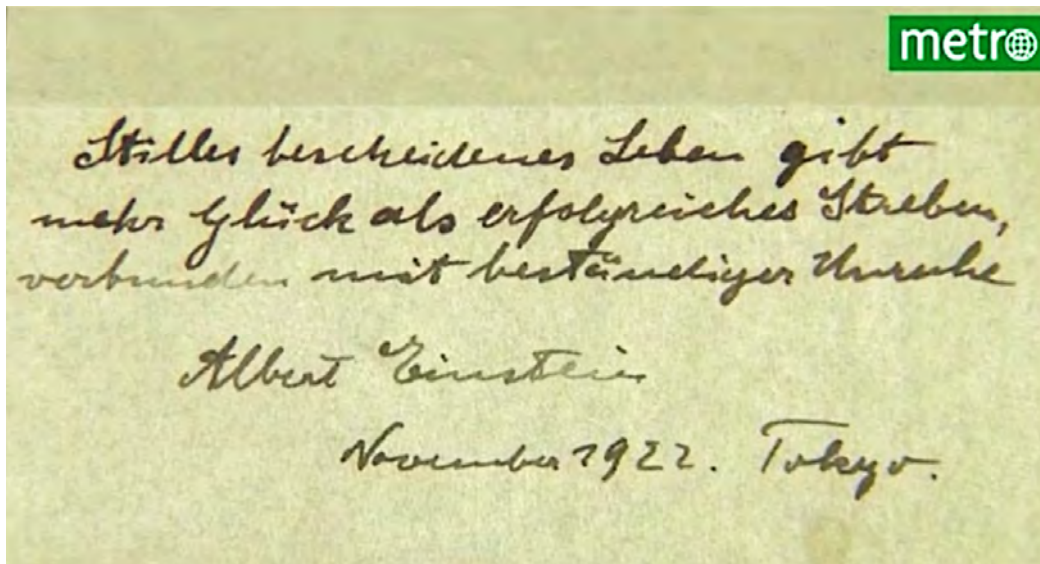 metro
Stilles bescheidenes Leben gibt
mehr Glück als erfolgreiches Streben,
verbunden mit beständiger Unruhe
Albert Einstein
November 1922. Tokyo.